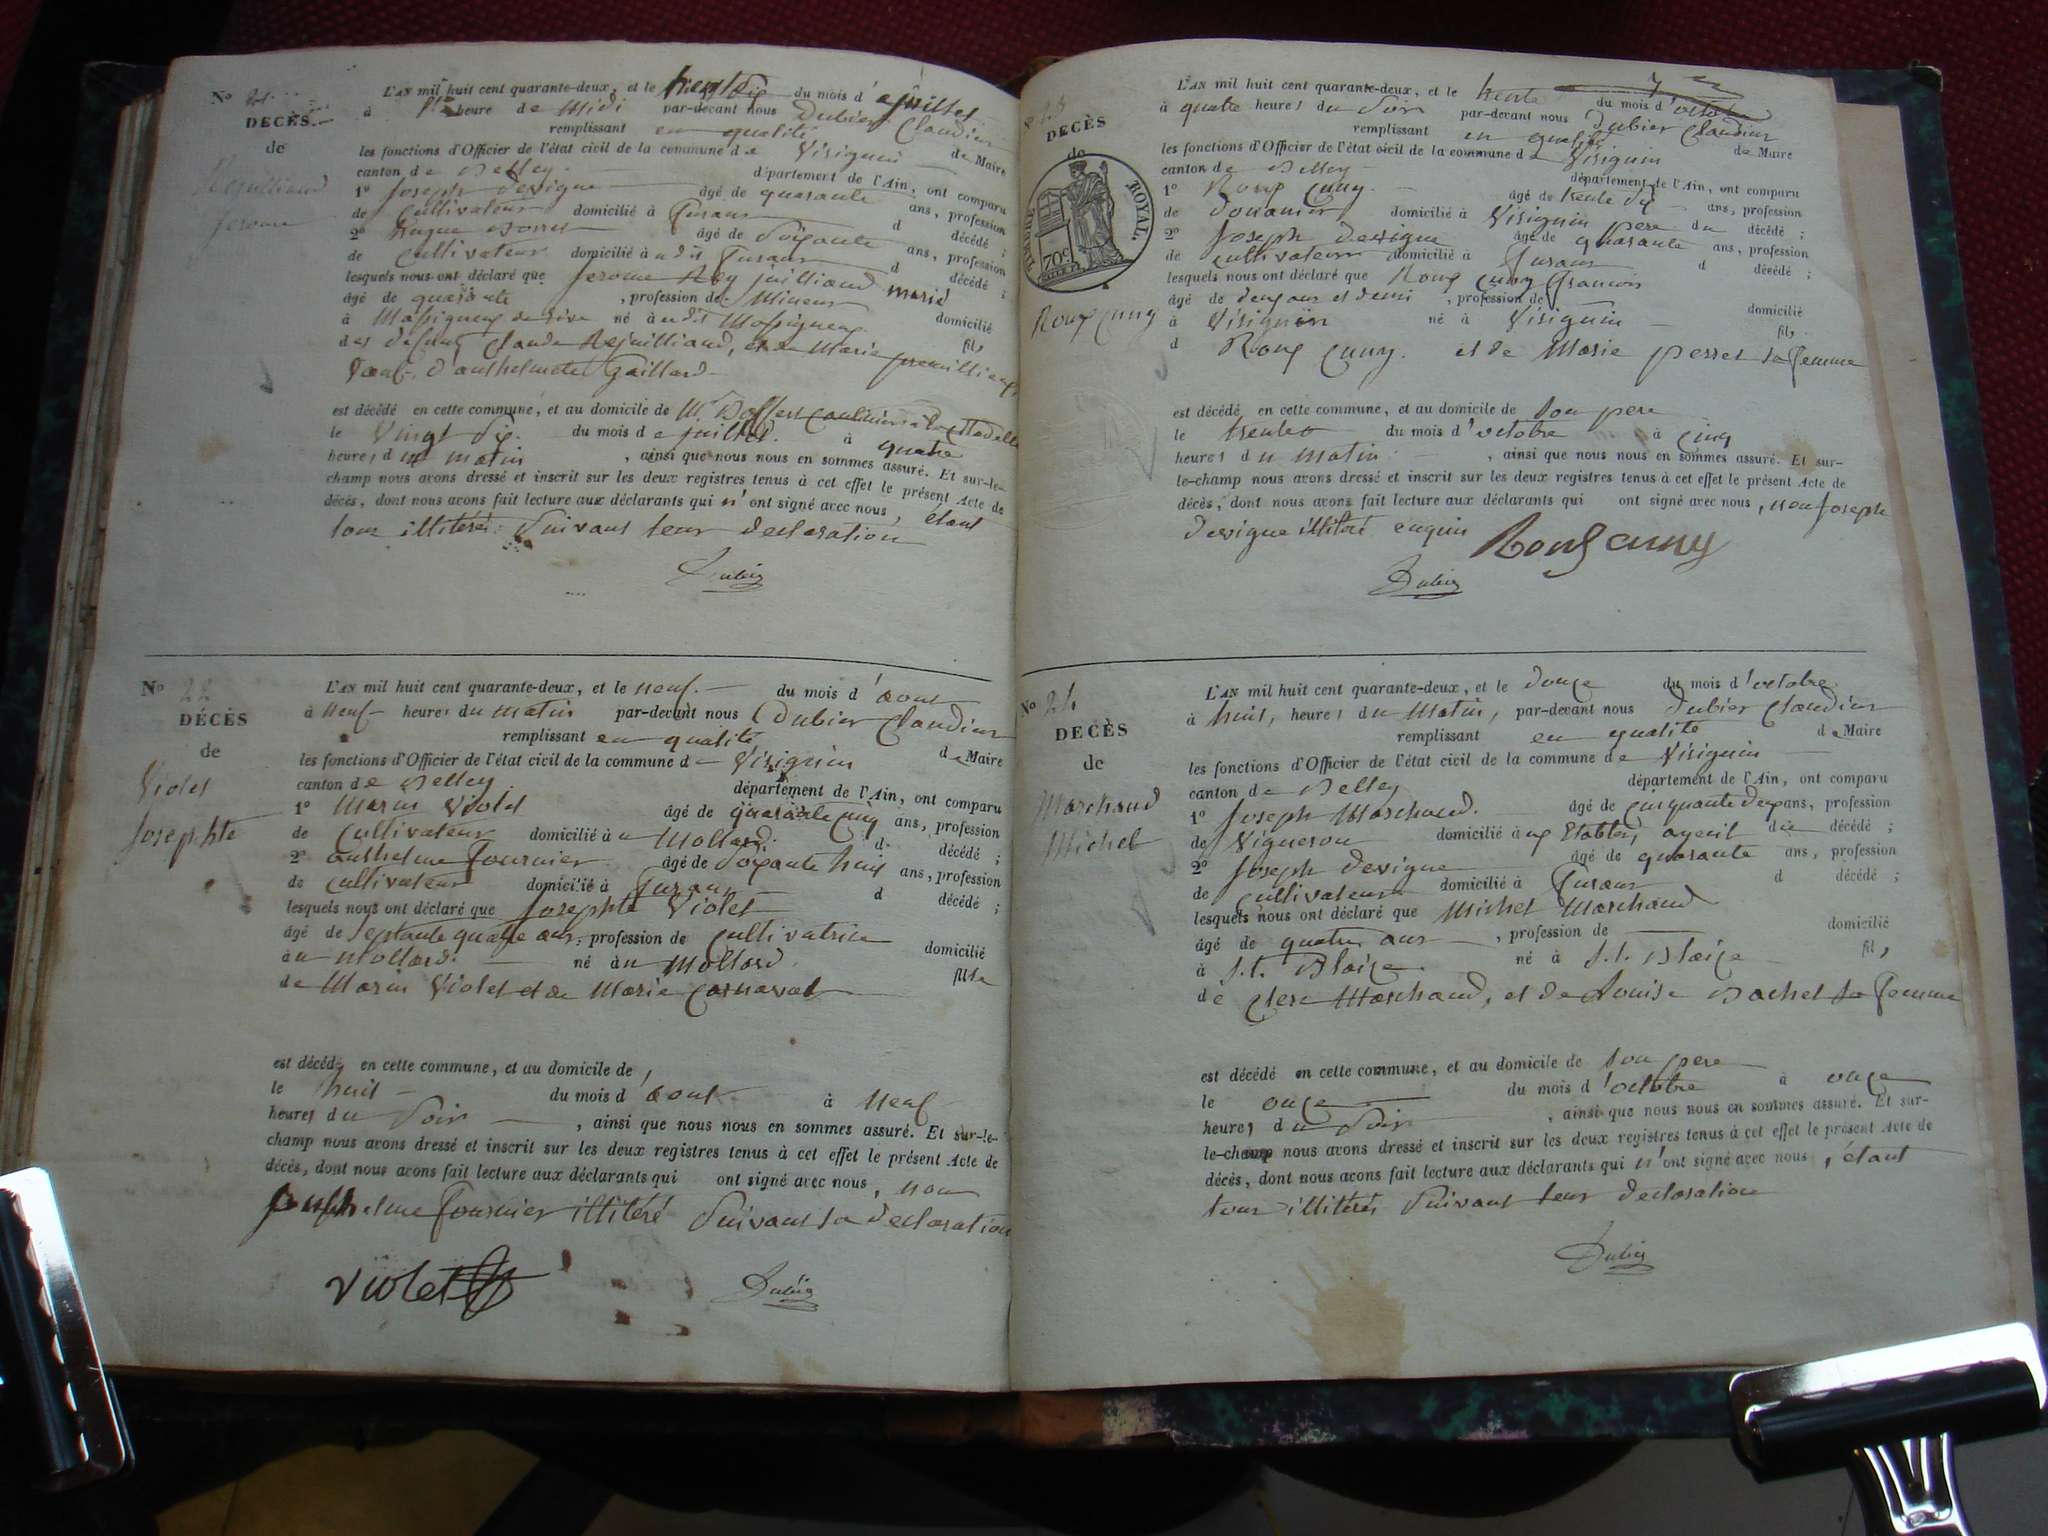 No 21
DÉCÈS
de
Rejuilliand
Jerome
L'AN mil huit cent quarante-deux, et le du mois de juillet
à heure de Midi par-devant nous Dubier Claudius
remplissant en qualité de Maire
les fonctions d'Officier de l'état civil de la commune de Virignin
canton de Belley département de l'Ain, ont comparu
1o Joseph devigne âgé de quarante ans, profession
de cultivateur domicilié à d décédé ;
2o hugue âgé de Soixante ans, profession
de cultivateur domicilié à udit d décédé ;
lesquels nous ont déclaré que Jerome Rejuilliand marié
âgé de quarante , profession de Mineur domicilié
à Massigneux de rive né à udit Massigneux fils
des defunt Claude Rejuilliand, et de Marie
d'anthelmete Gaillard
est décédé en cette commune, et au domicile de Mr
le Vingt Six du mois de juillet à quatre
heures du matin , ainsi que nous nous en sommes assuré. Et sur-le-
champ nous avons dressé et inscrit sur les deux registres tenus à cet effet le présent Acte de
décès, dont nous avons fait lecture aux déclarants qui n'ont signé avec nous, étant
tous illitérés Suivant leur declaration
Dubier
No 22
DÉCÈS
de
Violet
Josephte
L'AN mil huit cent quarante-deux, et le neuf du mois d'aout
à neuf heures du matin par-devant nous Dubier Claudius
remplissant en qualité de Maire
les fonctions d'Officier de l'état civil de la commune de Virignin
canton de Belley département de l'Ain, ont comparu
1o Marin Violet âgé de quarante cinq ans, profession
de cultivateur domicilié à u Mollard d décédé ;
2o anthelme Fournier âgé de Soixante huit ans, profession
de cultivateur domicilié à d décédé ;
lesquels nous ont déclaré que Josephte Violet
âgé de septante quatre ans, profession de cultivatrice domicilié
à u Mollard né à u Mollard fille
de Marin Violet et de Marie Carnaval
est décédé en cette commune, et au domicile de
le huit du mois d'aout à neuf
heures du Soir , ainsi que nous nous en sommes assuré. Et sur-le-
champ nous avons dressé et inscrit sur les deux registres tenus à cet effet le présent Acte de
décès, dont nous avons fait lecture aux déclarants qui ont signé avec nous, non
anthelme Fournier illitéré Suivant sa declaration
Violet
Dubier
23
DÉCÈS
de
TIMBRE ROYAL
70c
Roux Cuny
L'AN mil huit cent quarante-deux, et le trente du mois d'octobre
à quatre heures du Soir par-devant nous Dubier Claudius
remplissant en qualité de Maire
les fonctions d'Officier de l'état civil de la commune de Virignin
canton de Belley département de l'Ain, ont comparu
1o Roux Cuny âgé de trente Six ans, profession
de douanier domicilié à Virignin pere du décédé ;
2o Joseph devigne âgé de quarante ans, profession
de cultivateur domicilié à d décédé ;
lesquels nous ont déclaré que Roux Cuny François
âgé de deux ans et demi , profession de domicilié
à Virignin né à Virignin fils
d Roux Cuny et de Marie perret sa femme
est décédé en cette commune, et au domicile de Son pere
le trente du mois d'octobre à cinq
heures du matin , ainsi que nous nous en sommes assuré. Et sur-
le-champ nous avons dressé et inscrit sur les deux registres tenus à cet effet le présent Acte de
décès, dont nous avons fait lecture aux déclarants qui ont signé avec nous, non Joseph
devigne illitéré enquis
Roux Cuny
Dubier
No 24
DÉCÈS
de
Marchand
Michel
L'AN mil huit cent quarante-deux, et le Douze du mois d'octobre
à huit heures du Matin, par-devant nous Dubier Claudius
remplissant en qualité de Maire
les fonctions d'Officier de l'état civil de la commune de Virignin
canton de Belley département de l'Ain, ont comparu
1o Joseph Marchand âgé de cinquante deux ans, profession
de Vigneron domicilié à ux Etables, décédé ;
2o Joseph devigne âgé de quarante ans, profession
de cultivateur domicilié à d décédé ;
lesquels nous ont déclaré que Michel Marchand
âgé de quatre ans , profession de domicilié
à St. Blaize né à St. Blaize fils
de Marchand, et de Louise Bachet sa femme
est décédé en cette commune, et au domicile de Son pere
le onze du mois d'octobre à onze
heures du Soir , ainsi que nous nous en sommes assuré. Et sur-
le-champ nous avons dressé et inscrit sur les deux registres tenus à cet effet le présent Acte de
décès, dont nous avons fait lecture aux déclarants qui n'ont signé avec nous, étant
tous illitérés Suivant leur declaration
Dubier